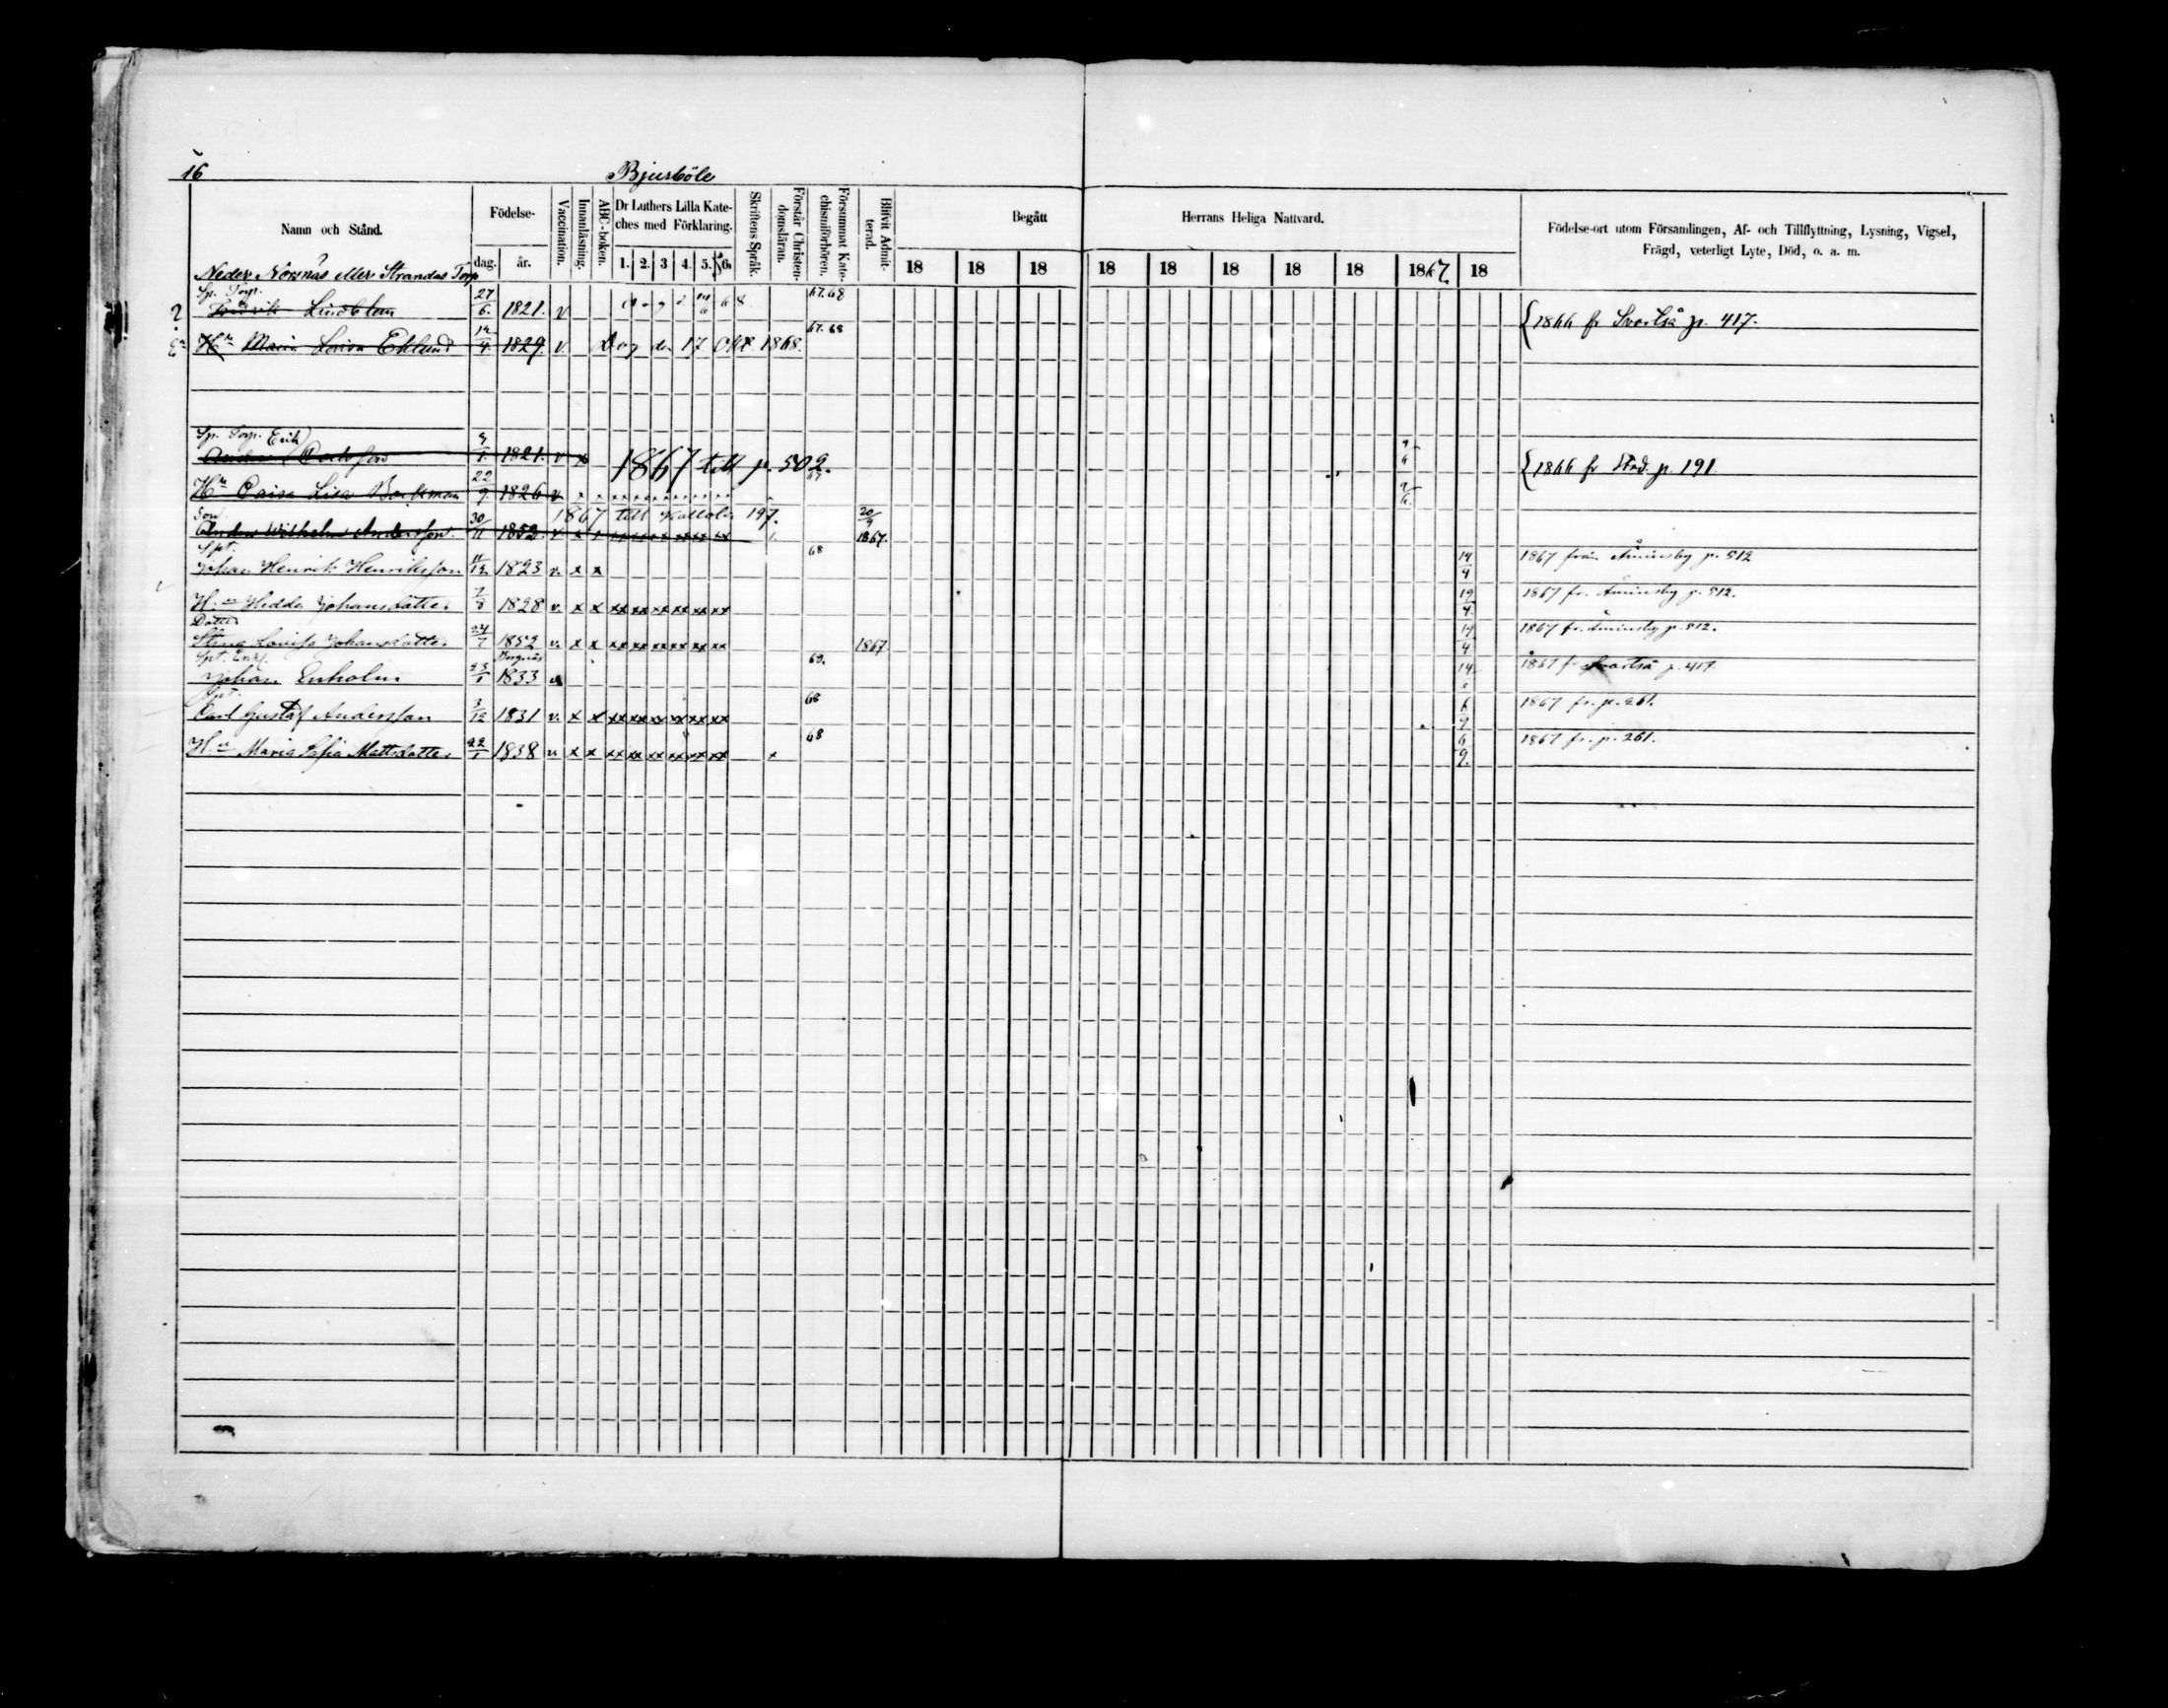 16 Bjusböle
Namn och Stånd. Födelse- Vaccination. Innanläsning. ABC-boken. Dr Luthers Lilla Kate-ches med Förklaring. Skriftens Språk. Förstår Christen-domsläran. Försummat Kate-chismiförhören. Blifvit Admit-terad. Begått Herrans Heliga Nattvard. Födelse-ort utom Församlingen, Af- och Tillflyttning, Lysning, Vigsel, Frägd, veterligt Lyte, Död, o. a. m.
dag. år. 1. 2. 3 4. 5. 6. 18 18 18 18 18 18 18 18 1867. 18
Neder Norrnäs eller Strandas Torp
Sp. Torp.
Fredrik Lindblom 27/6. 1821. v 67.68 {1866 fr Svartså p. 417.
Hu Maria Lovisa Eklund 1829. v Dog den 17 1868. 67.68
Sp. Torp. Erik
Anders Carlsson 1821. v x 1867 till p. 502. {1866 fr p. 191.
Hu Caisa Lisa 22/9 1826 v x x 67
Son
Anders Wilhelm Andersson 30/11 1852. v x 1867 till 197. 20/9 1867.
Spt.
Johan Henrik Henriksson 11/12 1823 v. x x 68 14/4 1867 från Åminsby p. 512
H.u Hedda Johansdotter 7/8 1828 v. x x xx xx xx xx xx xx 19/4. 1867 fr. Åminsby p. 512.
Dotter
Stina Lovisa Johansdotter 24/7 1852 v. x x xx xx xx xx xx xx 1867 14/4 1867 fr. Åminsby p. 512.
Spt. Enkl.
Johan Enholm 25/1 1833 v 68. 14 1867 fr Svartså p. 417
Spt.
Carl Gustaf Andersson 3/12 1831 v. x x xx xx xx xx xx xx 68 6/9 1867 fr. p. 261.
H.u Maria Sofia Mattsdotter 22/1 1838 v. x x xx xx xx xx xx xx x 68 6/9. 1867 fr. p. 261.